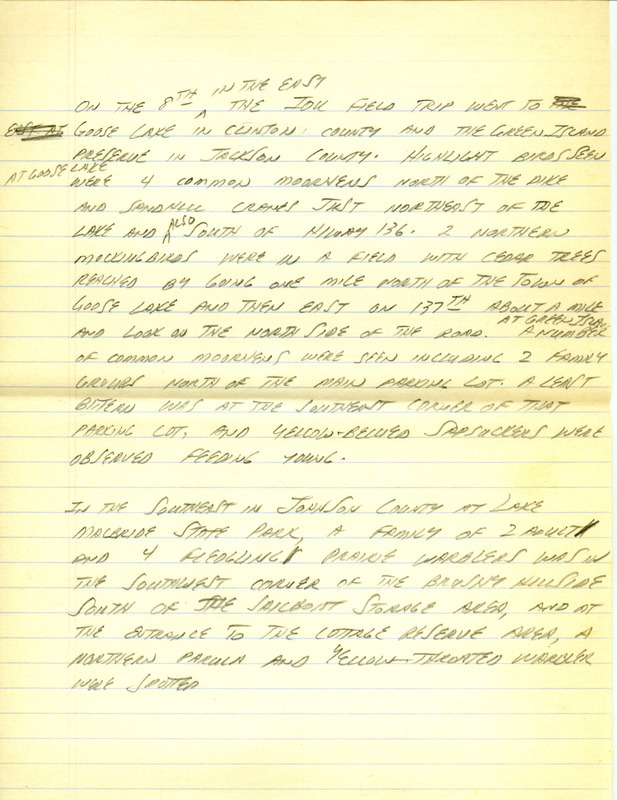 IN THE EAST
ON THE 8TH ^ THE IOU FIELD TRIP WENT TO
GOOSE LAKE IN CLINTON COUNTY AND THE GREEN ISLAND
PRESERVE IN JACKSON COUNTY. HIGHLIGHT BIRDS SEEN
AT GOOSE LAKE
WERE 4 COMMON MOORHENS NORTH OF THE DIKE
AND SANDHILL CRANES JUST NORTHEAST OF THE
LAKE AND ^ALSO SOUTH OF HIWAY 136. 2 NORTHERN
MOCKINGBIRDS WERE IN A FIELD WITH CEDAR TREES
REACHED BY GOING ONE MILE NORTH OF THE TOWN OF
GOOSE LAKE AND THEN EAST ON 137TH ABOUT A MILE
AND LOOK ON THE NORTH SIDE OF THE ROAD. AT GREEN ISLAND A NUMBER
OF COMMON MOORHENS WERE SEEN INCLUDING 2 FAMILY
GROUPS NORTH OF THE MAIN PARKING LOT. A LEAST
BITTERN WAS AT THE SOUTHEAST CORNER OF THAT
PARKING LOT, AND YELLOW-BELLIED SAPSUCKERS WERE
OBSERVED FEEDING YOUNG.
IN THE SOUTHEAST IN JOHNSON COUNTY AT LAKE
MACBRIDE STATE PARK, A FAMILY OF 2 ADULT
AND 4 FLEDGLING PRAIRIE WARBLERS WAS IN
THE SOUTHWEST CORNER OF THE BRUSHY HILLSIDE
SOUTH OF THE SAILBOAT STORAGE AREA, AND AT
THE ENTRANCE TO THE COTTAGE RESERVE AREA, A
NORTHERN PARULA AND YELLOW-THROATED WARBLER
WERE SPOTTED